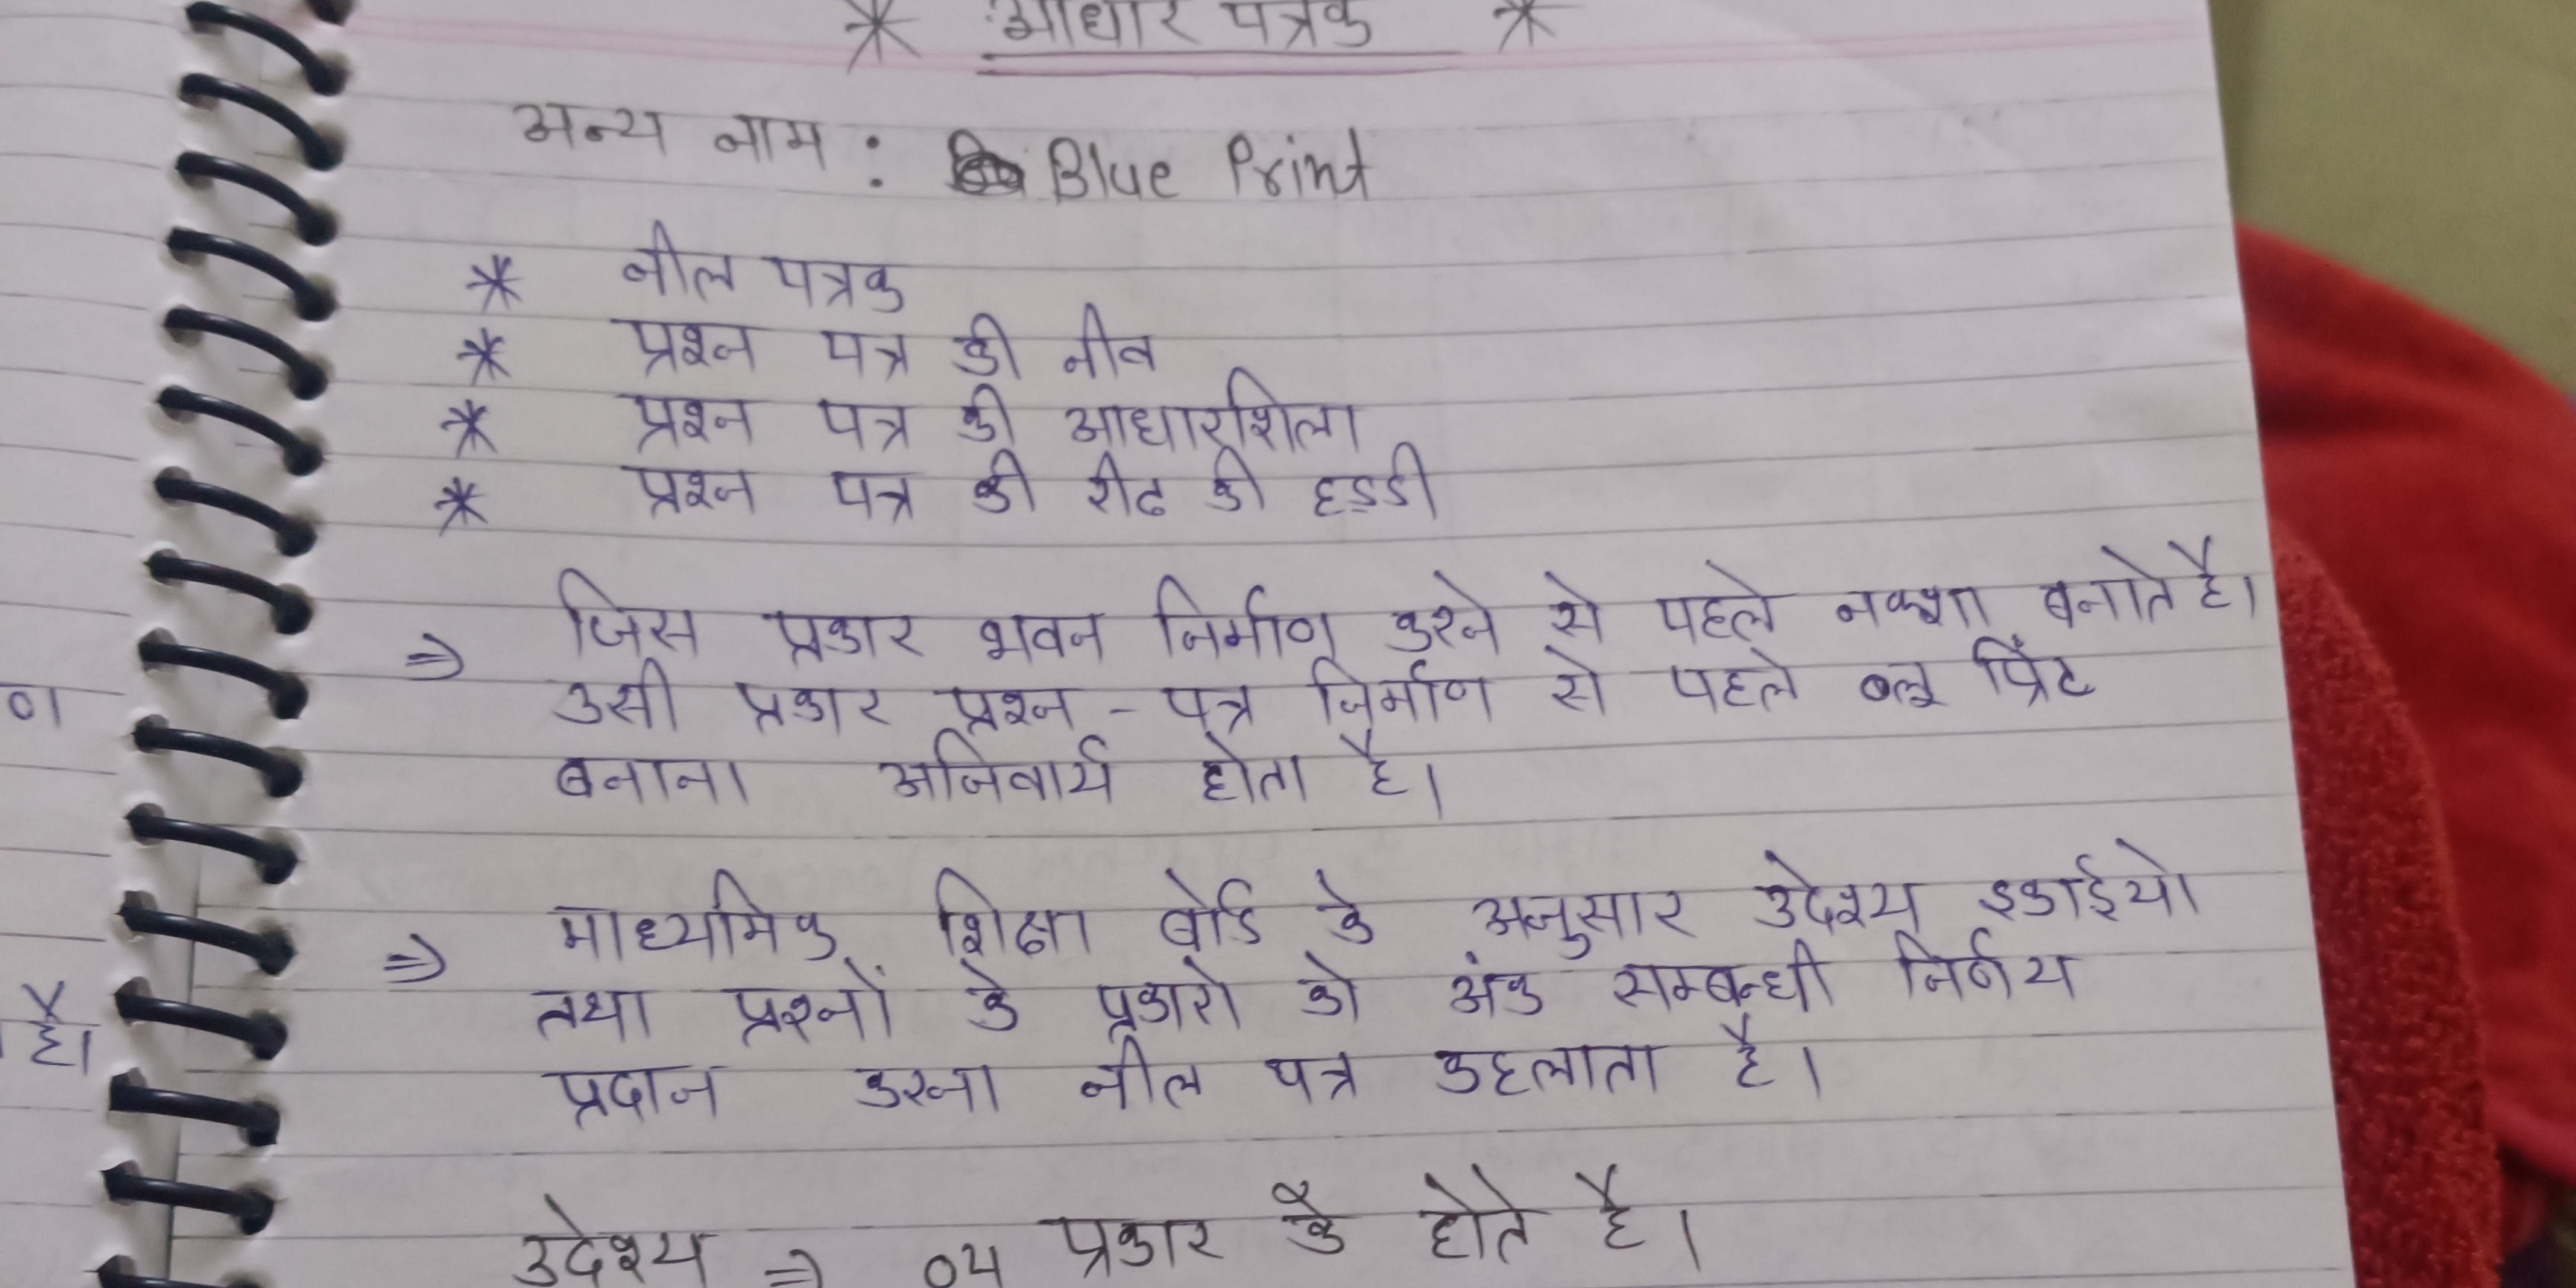 * आधार पत्रक *
अन्य नाम : Blue Print
* नील पत्रक
* प्रश्न पत्र की नीव
* प्रश्न पत्र की आधारशिला
* प्रश्न पत्र की रीढ की हड्डी
⇒ जिस प्रकार भवन निर्माण करने से पहले नक्शा बनाते है।
उसी प्रकार प्रश्न - पत्र निर्माण से पहले ब्लू प्रिंट
बनाना अनिवार्य होता है।
⇒ माध्यमिक शिक्षा बोर्ड के अनुसार उदेश्य इकाईयो
तथा प्रश्नों के प्रकारो को अंक सम्बन्धी निर्णय
प्रदान करना नील पत्र कहलाता है।
उदेश्य ⇒ 04 प्रकार के होते है।
ण
है।